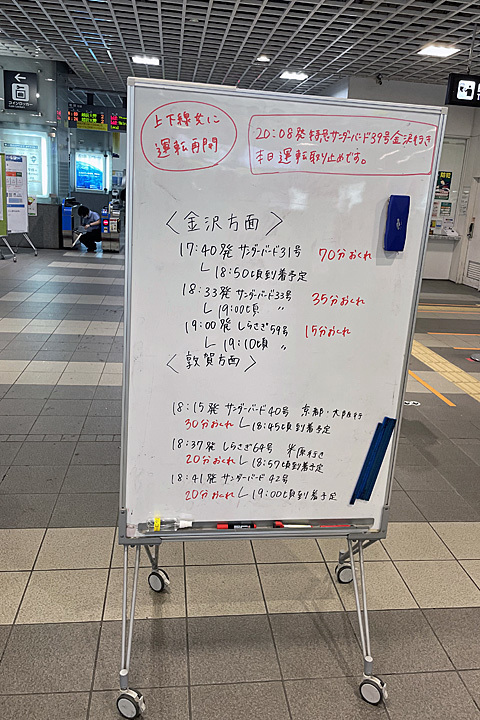 コインロッカー
上下線共に
運転再開
20:08発 特急サンダーバード39号 金沢行き
本日運転取り止めです。
〈金沢方面〉
17:40発 サンダーバード31号 70分おくれ
└ 18:50頃到着予定
18:33発 サンダーバード33号 35分おくれ
└ 19:00頃 〃
19:00発 しらさぎ59号 15分おくれ
└ 19:10頃 〃
〈敦賀方面〉
18:15発 サンダーバード40号 京都・大阪行
30分おくれ └ 18:45頃到着予定
18:37発 しらさぎ64号 米原行き
20分おくれ └ 18:57頃到着予定
18:41発 サンダーバード42号
20分おくれ └ 19:00頃到着予定